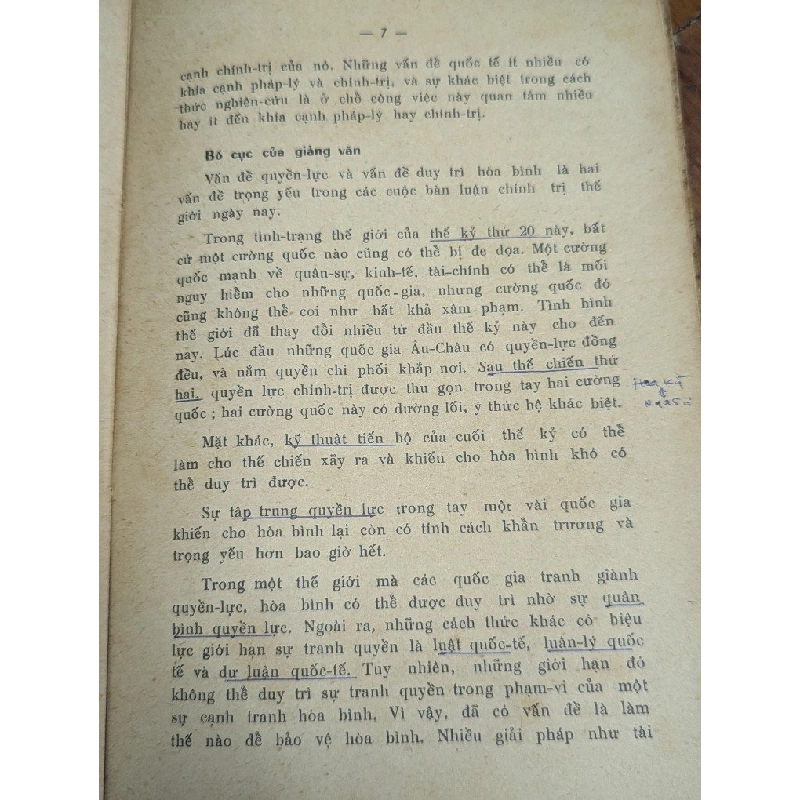 — 7 —
cạnh chính-trị của nó. Những vấn đề quốc tế ít nhiều có
khía cạnh pháp-lý và chính-trị, và sự khác biệt trong cách
thức nghiên-cứu là ở chỗ công việc này quan tâm nhiều
hay ít đến khía cạnh pháp-lý hay chính-trị.
Bố cục của giảng văn
Vấn đề quyền-lực và vấn đề duy trì hòa bình là hai
vấn đề trọng yếu trong các cuộc bàn luận chính trị thế
giới ngày nay.
Trong tình-trạng thế giới của thế kỷ thứ 20 này, bất
cứ một cường quốc nào cũng có thể bị đe dọa. Một cường
quốc mạnh về quân-sự, kinh-tế, tài-chính có thể là mối
nguy hiểm cho những quốc-gia, nhưng cường quốc đó
cũng không thể coi như bất khả xâm phạm. Tình hình
thế giới đã thay đổi nhiều từ đầu thế kỷ này cho đến
nay. Lúc đầu những quốc gia Âu-Châu có quyền-lực đồng
đều, và nắm quyền chi phối khắp nơi. Sau thế chiến thứ
hai, quyền lực chính-trị được thu gọn trong tay hai cường
quốc ; hai cường quốc này có đường lối, ý thức hệ khác biệt.
Hoa Kỳ
&
Mặt khác, kỹ thuật tiến bộ của cuối thế kỷ có thể
làm cho thế chiến xảy ra và khiến cho hòa bình khó có
thể duy trì được.
Sự tập trung quyền lực trong tay một vài quốc gia
khiến cho hòa bình lại còn có tính cách khẩn trương và
trọng yếu hơn bao giờ hết.
Trong một thế giới mà các quốc gia tranh giành
quyền-lực, hòa bình có thể được duy trì nhờ sự quân
bình quyền lực. Ngoài ra, những cách thức khác có hiệu
lực giới hạn sự tranh quyền là luật quốc-tế, luân-lý quốc
tế và dư luận quốc-tế. Tuy nhiên, những giới hạn đó
không thể duy trì sự tranh quyền trong phạm-vi của một
sự cạnh tranh hòa bình. Vì vậy, đã có vấn đề là làm
thế nào để bảo vệ hòa bình. Nhiều giải pháp như tài